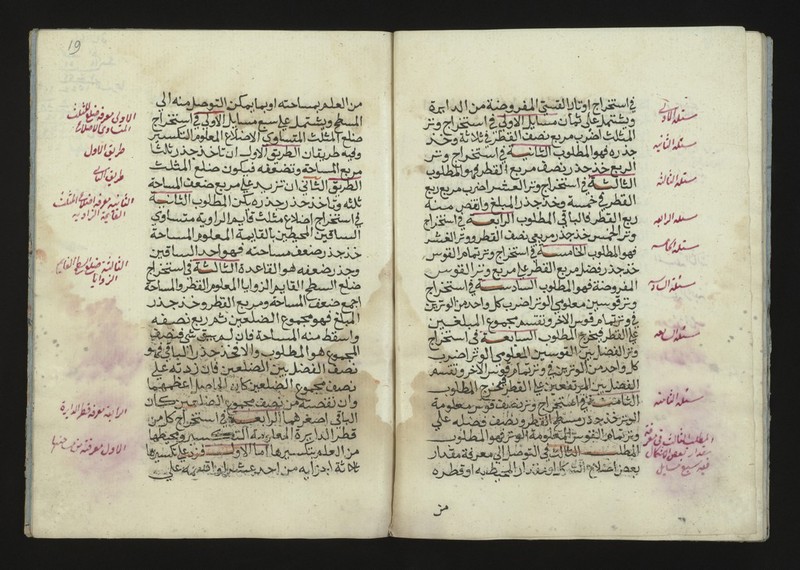 في استخراج اوتار القسي المفروضة من الدايرة
ويشتمل على ثمان مسايل الاولى في استخراج وتر
المثلث اضرب مربع نصف القطر في ثلاثة وخذ
جذره فهو المطلوب الثانية في استخراج وتر
الربع خذ جذر نصف مربع القطر فهو المطلوب
الثالثة في استخراج وتر العشر اضرب مربع ربع
القطر في خمسة وخذ جذر المبلغ وانقص منه
ربع القطر فالباقي المطلوب الرابعة في استخراج
وتر الخمس خذ جذر مربعي نصف القطر ووتر العشر
فهو المطلوب الخامسة في استخراج وتر تمام القوس
خذ جذر فضل مربع القطر على مربع وتر القوس
المفروضة فهو المطلوب السادسة في استخراج
وتر قوسين معلومي الوتر اضرب كل واحد من الوترين
في وتر تمام قوس الاخر ونقسم مجموع المبلغين
على القطر فيخرج المطلوب السابعة في استخراج
وتر الفضل بين القوسين المعلومي الوتر اضرب
كل واحد من الوترين في وتر تمام قوس الاخر ونقسم
الفضل بين المرتفعين على القطر فيخرج المطلوب
الثامنة في استخراج وتر نصف قوس معلومة
الوتر خذ جذر وسط القطر ونصف وفضله على
وتر تمام القوس المعلومة الوتر فهو المطلوب
المطلب الثالث في التوصل الى معرفة مقدار
بعض اضلاع الشكل او مقدار المحيط به او قطره
من
مسئلة الاولى
مسئلة الثانيه
مسئلة الثالثه
مسئلة الرابعه
مسئلة الخامسه
مسئلة السادسه
مسئلة السابعه
مسئلة الثامنه
المطلب الثالث في معرفة
مقدار بعض الاشكال
19
من العلم بمساحته او بما يمكن التوصل منه الى
المسطح ويشتمل على سبع مسايل الاولى في استخراج
ضلع المثلث المتساوي الاضلاع المعلوم التكسير
وفيه طريقان الطريق الاول ان تاخذ جذر ثلث
مربع المساحة وتضعفه فيكون ضلع المثلث
الطريق الثاني ان تزيد على مربع ضعف المساحة
ثلثه وياخذ جذر جذره يكن المطلوب الثانية
في استخراج اضلاع مثلث قايم الزاوية متساوي
الساقين المحيطين بالقايمة المعلوم المساحة
خذ جذر ضعف مساحته فهو احد الساقين
وجذر ضعفه هو القاعدة الثالثة في استخراج
ضلاع السطح القايم الزوايا المعلوم القطر والمساحة
اجمع ضعف المساحة ومربع القطر وخذ جذر
المبلغ فهو مجموع الضلعين ثم ربع نصفه
واسقط منه المساحة فان لم يبق شي فنصف
المجموع هو المطلوب والا فخذ جذر الباقي فهو
نصف الفضل بين الضلعين فان زدته على
نصف مجموع الضلعين كان الحاصل اعظمهما
وان نقصته من نصف مجموع الضلعين كان
الباقي اصغرهما الرابعة في استخراج كل من
قطر الدايرة المعلومة التكسير ومحيطها
من العلم بتكسيرها اما الاول فزد على تكسيرها
ثلاثة اجزايه من احد عشر واقسمه على
الاولى معرفة ضلع المثلث
المتساوي الاضلاع
طريق الاول
طريق الثاني
الثانيه معرفة اضلاع المثلث
القايمة الزاويه
الثالثه ضلع سطح القايم
الزوايا
الرابعه معرفة قطر الدايرة